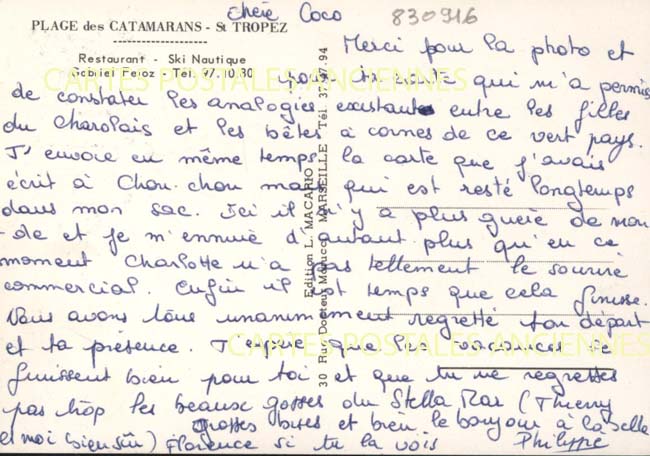 Chère Coco
830916
PLAGE des CATAMARANS - St TROPEZ
Restaurant - Ski Nautique
Gabriel Feroz - Tél. 97.10.80
Merci pour la photo et
pour ta carte qui m'a permis
de constater les analogies existant entre les filles
du Charolais et les bêtes à cornes de ce vert pays.
J'envoie en même temps la carte que j'avais
écrit à Chou-chou mais qui est resté longtemps
dans mon sac. Ici il n'y a plus guère de mon-
de et je m'ennuie d'autant plus qu'en ce
moment Charlotte n'a pas tellement le sourire
commercial. Enfin il est temps que cela finisse.
Nous avons tous unanimement regretté ton départ
et ta présence. J'espère que les vacances se
finissent bien pour toi et que tu ne regrettes
pas trop les beaux gosses du Stella Mar (Thierry
et moi bien sûr) grosses bises et bien le bonjour à la belle
Florence si tu la vois Philippe
Edition L. MACARIO
30 Rue Docteur Monucci MARSEILLE Tél. 94
CARTES POSTALES ANCIENNES
CARTES POSTALES ANCIENNES